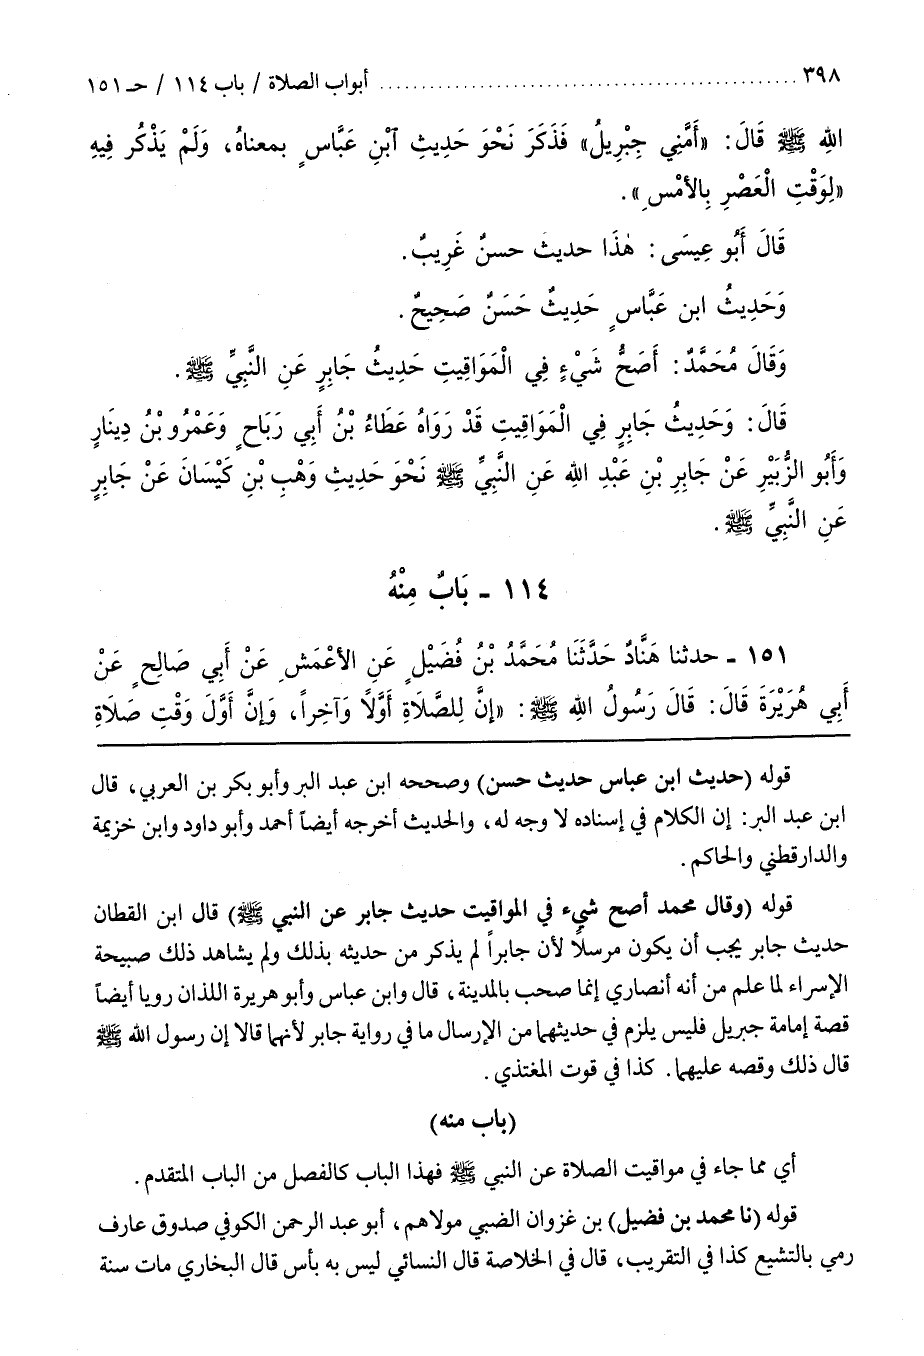 ٣٩٨ ........ أبواب الصلاة / باب ١١٤ / حـ ١٥١
اللهِ ﷺ قَالَ: «أَمَّنِي جِبْرِيلُ» فَذَكَرَ نَحْوَ حَدِيثِ ٱبْنِ عَبَّاسٍ بمعناهُ، وَلَمْ يَذْكُر فِيهِ
«لِوَقْتِ الْعَصْرِ بِالأَمْسِ».
قَالَ أَبُو عِيسَى: هٰذَا حديث حسنٌ غَرِيبٌ.
وَحَدِيثُ ابن عَبَّاسٍ حَدِيثٌ حَسَنٌ صَحِيحٌ.
وَقَالَ مُحَمَّدٌ: أَصَحُّ شَيْءٍ فِي الْمَوَاقِيتِ حَدِيثُ جَابِرٍ عَنِ النَّبِيِّ ﷺ.
قَالَ: وَحَدِيثُ جَابِرٍ فِي الْمَوَاقِيتِ قَدْ رَوَاهُ عَطَاءُ بْنُ أَبِي رَبَاحٍ وَعَمْرُو بْنُ دِينَارٍ
وَأَبُو الزُّبَيْرِ عَنْ جَابِرِ بْنِ عَبْدِ اللهِ عَنِ النَّبِيِّ ﷺ نَحْوَ حَدِيثِ وَهْبِ بْنِ كَيْسَانَ عَنْ جَابِرٍ
عَنِ النَّبِيِّ ﷺ.
١١٤ - بَابٌ مِنْهُ
١٥١ - حدثنا هَنَّادٌ حَدَّثَنَا مُحَمَّدُ بْنُ فُضَيْلٍ عَنِ الأَعْمَشِ عَنْ أَبِي صَالِحٍ عَنْ
أَبِي هُرَيْرَةَ قَالَ: قَالَ رَسُولُ اللهِ ﷺ: «إِنَّ لِلصَّلَاةِ أَوَّلاً وَآخِراً، وَإِنَّ أَوَّلَ وَقْتِ صَلَاةِ
قوله (حديث ابن عباس حديث حسن) وصححه ابن عبد البر وأبو بكر بن العربي، قال
ابن عبد البر: إن الكلام في إسناده لا وجه له، والحديث أخرجه أيضاً أحمد وأبو داود وابن خزيمة
والدارقطني والحاكم.
قوله (وقال محمد أصح شيء في المواقيت حديث جابر عن النبي ﷺ) قال ابن القطان
حديث جابر يجب أن يكون مرسلاً لأن جابراً لم يذكر من حديثه بذلك ولم يشاهد ذلك صبيحة
الإسراء لما علم من أنه أنصاري إنما صحب بالمدينة، قال وابن عباس وأبو هريرة اللذان رويا أيضاً
قصة إمامة جبريل فليس يلزم في حديثهما من الإرسال ما في رواية جابر لأنهما قالا إن رسول الله ﷺ
قال ذلك وقصه عليهما. كذا في قوت المغتذي.
(باب منه)
أي مما جاء في مواقيت الصلاة عن النبي ﷺ فهذا الباب كالفصل من الباب المتقدم.
قوله (نا محمد بن فضيل) بن غزوان الضبي مولاهم، أبو عبد الرحمن الكوفي صدوق عارف
رمي بالتشيع كذا في التقريب، قال في الخلاصة قال النسائي ليس به بأس قال البخاري مات سنة